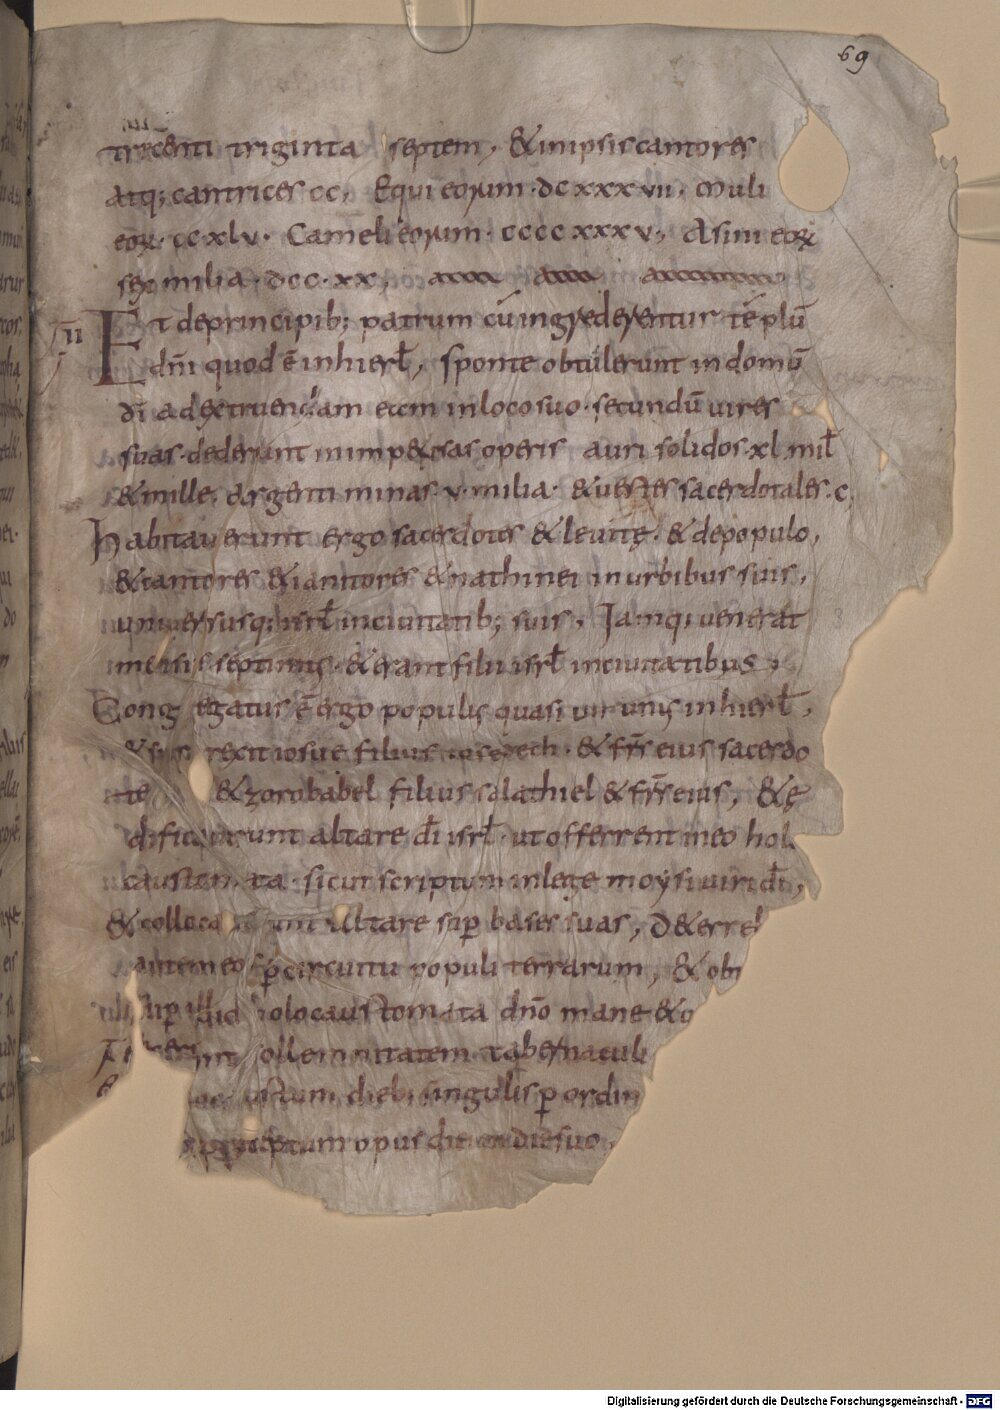 69
trecenti triginta septem, & in ipsis cantores
atq; cantrices cc, Equi eorum · dcxxxvii, muli
eorꝝ · ccxlv · Cameli eorum · ccccxxxv, Asini eorꝝ
sex milia · dcc · xx,
ii Et de principib; patrum cū ingrederentur tēplū
dn̄i quod ē in hierl̄, sponte obtulerunt in domū
di ad extruendam eam in loco suo · secundū vires
suas · dederunt in impensas operis auri solidos · xl mil̄
& mille, argenti minas · v · milia · & vestes sacerdotales · c,
Habitaverunt ergo sacerdotes & levitę · & de populo,
& cantores & ianitores & nathinei in urbibus suis,
universusq; isrl̄ in civitatib; suis, Iamq; venerat
mensis septimus · & erant filii isrl̄ in civitatibus
Congregatus ē ergo populus quasi vir unus in hierl̄,
& surrexit iosue filius iosedech · & frs̄ eius sacerdo
te & zorobabel filius salathiel & frs̄ eius, & ę
dificaverunt altare dī isrl̄ · ut offerrent in eo hol
causta sicut scriptum in lege moysi viri dī,
& colloca altare sup̄ bases suas, D&erre
autem eos p̄ circuitu populi terrarum, & obt
sup̄ illud holocaustomata dn̄o mane & 
sollemnitatem tabernaculi
dieb; singulis p̄ ordin
opus diei in die suo,
Digitalisierung gefördert durch die Deutsche Forschungsgemeinschaft - DFG